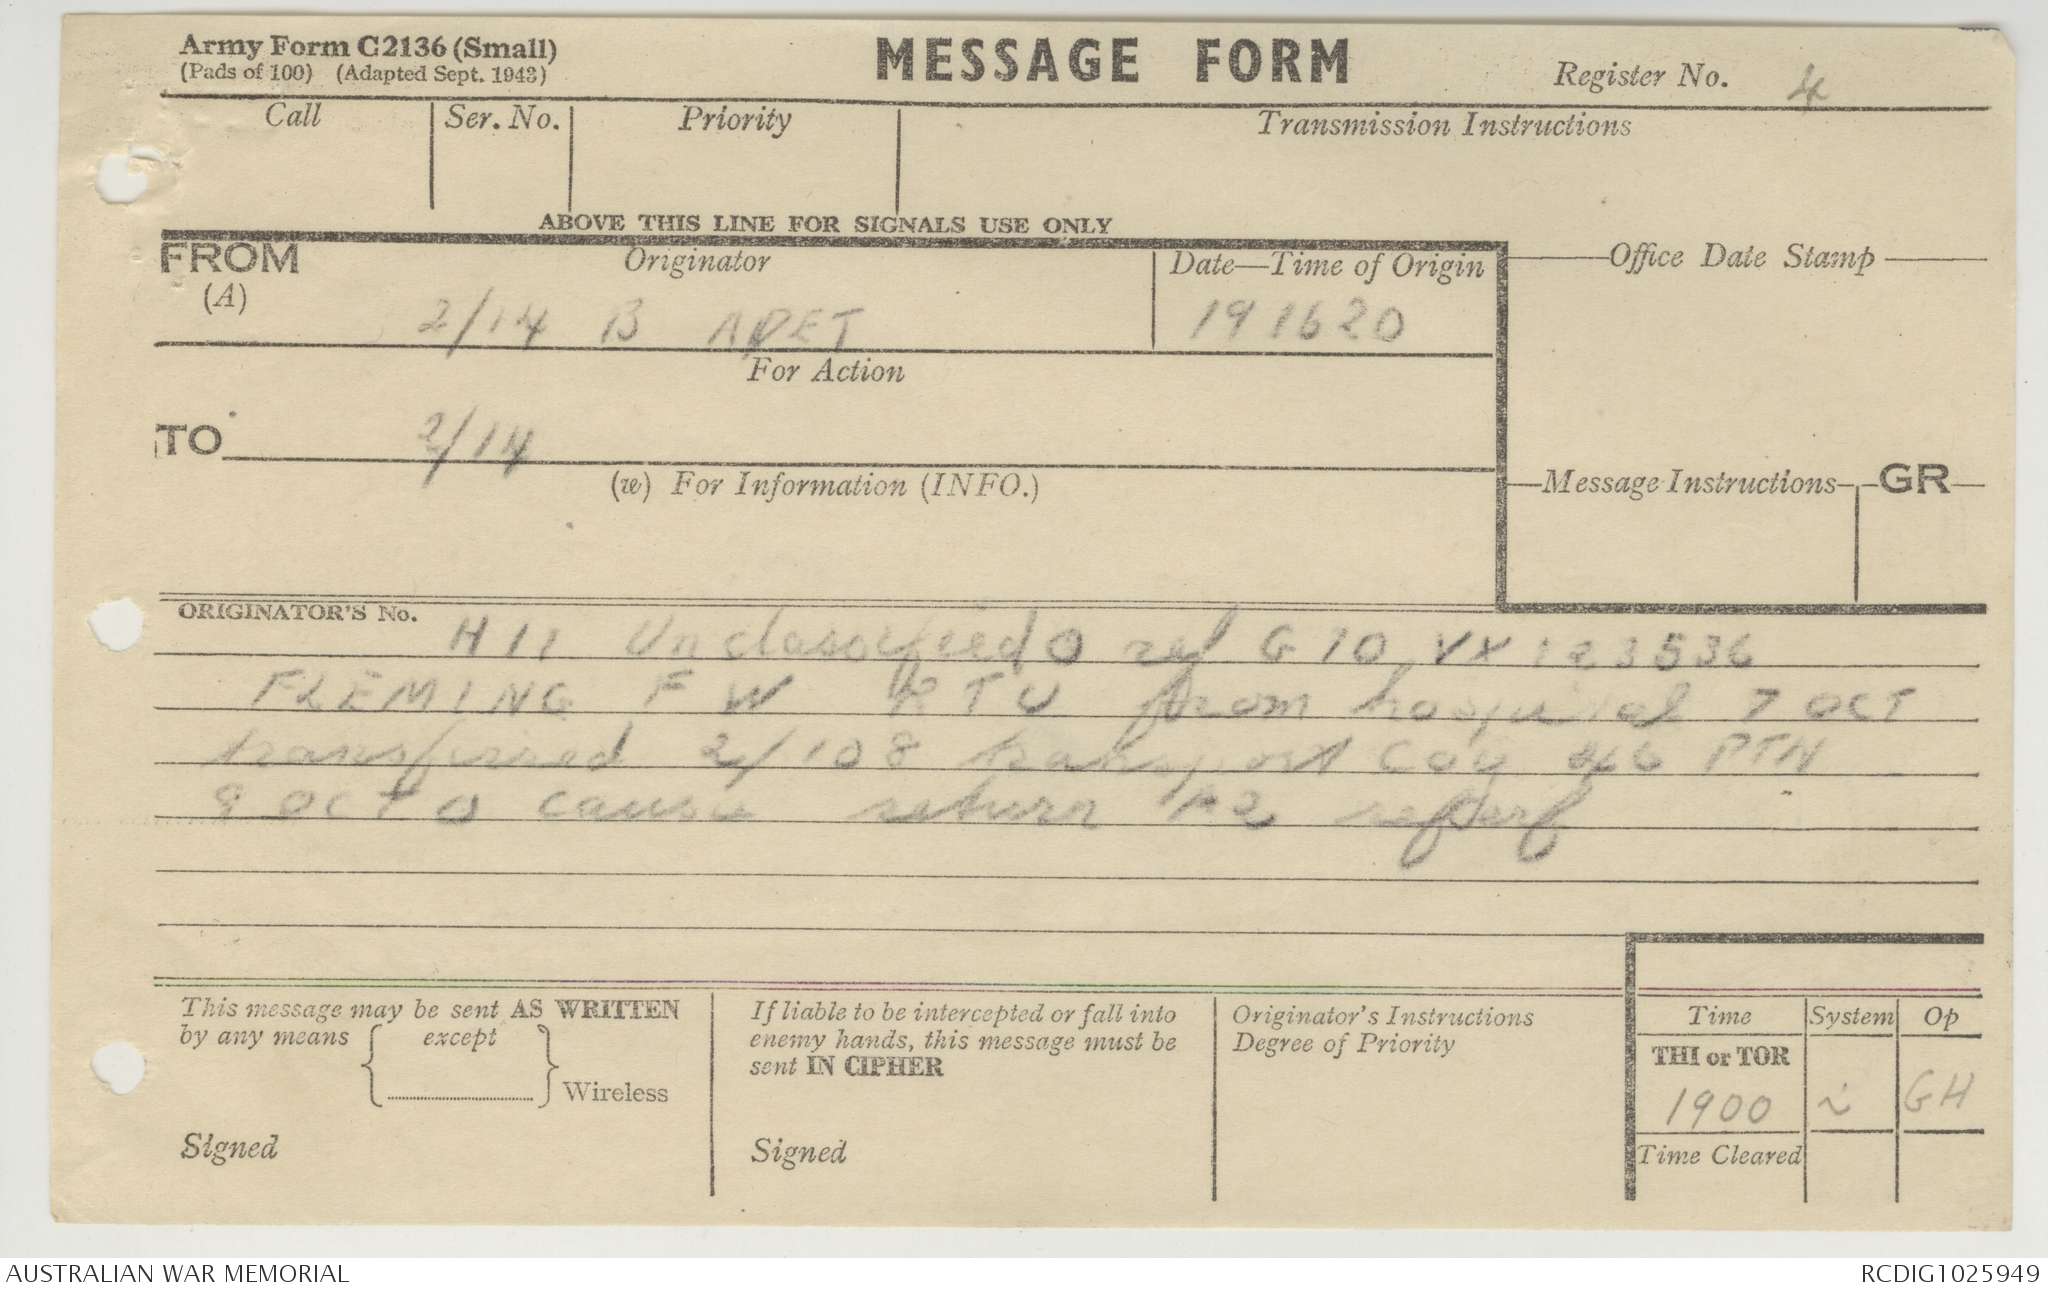 Army Form C2136 (Small)
(Pads of 100) (Adapted Sept. 1943)
MESSAGE FORM
Register No. 4
Call
Ser. No.
Priority
Transmission Instructions
ABOVE THIS LINE FOR SIGNALS USE ONLY
FROM
(A)
Originator
2/14 B ADET
Date—Time of Origin
191620
Office Date Stamp
For Action
TO
2/14
(w) For Information (INFO.)
Message Instructions
GR
ORIGINATOR'S No.
H11 Unclassified O ref G10 VX123536
FLEMING F W RTU from hospital 7 OCT
transferred 2/108 transport Coy 46 PTN
8 OCT O cause return A2
This message may be sent AS WRITTEN
by any means
except
Wireless
Signed
If liable to be intercepted or fall into
enemy hands, this message must be
sent IN CIPHER
Signed
Originator's Instructions
Degree of Priority
Time
System
Op
THI or TOR
1900
GH
Time Cleared
AUSTRALIAN WAR MEMORIAL
RCDIG1025949